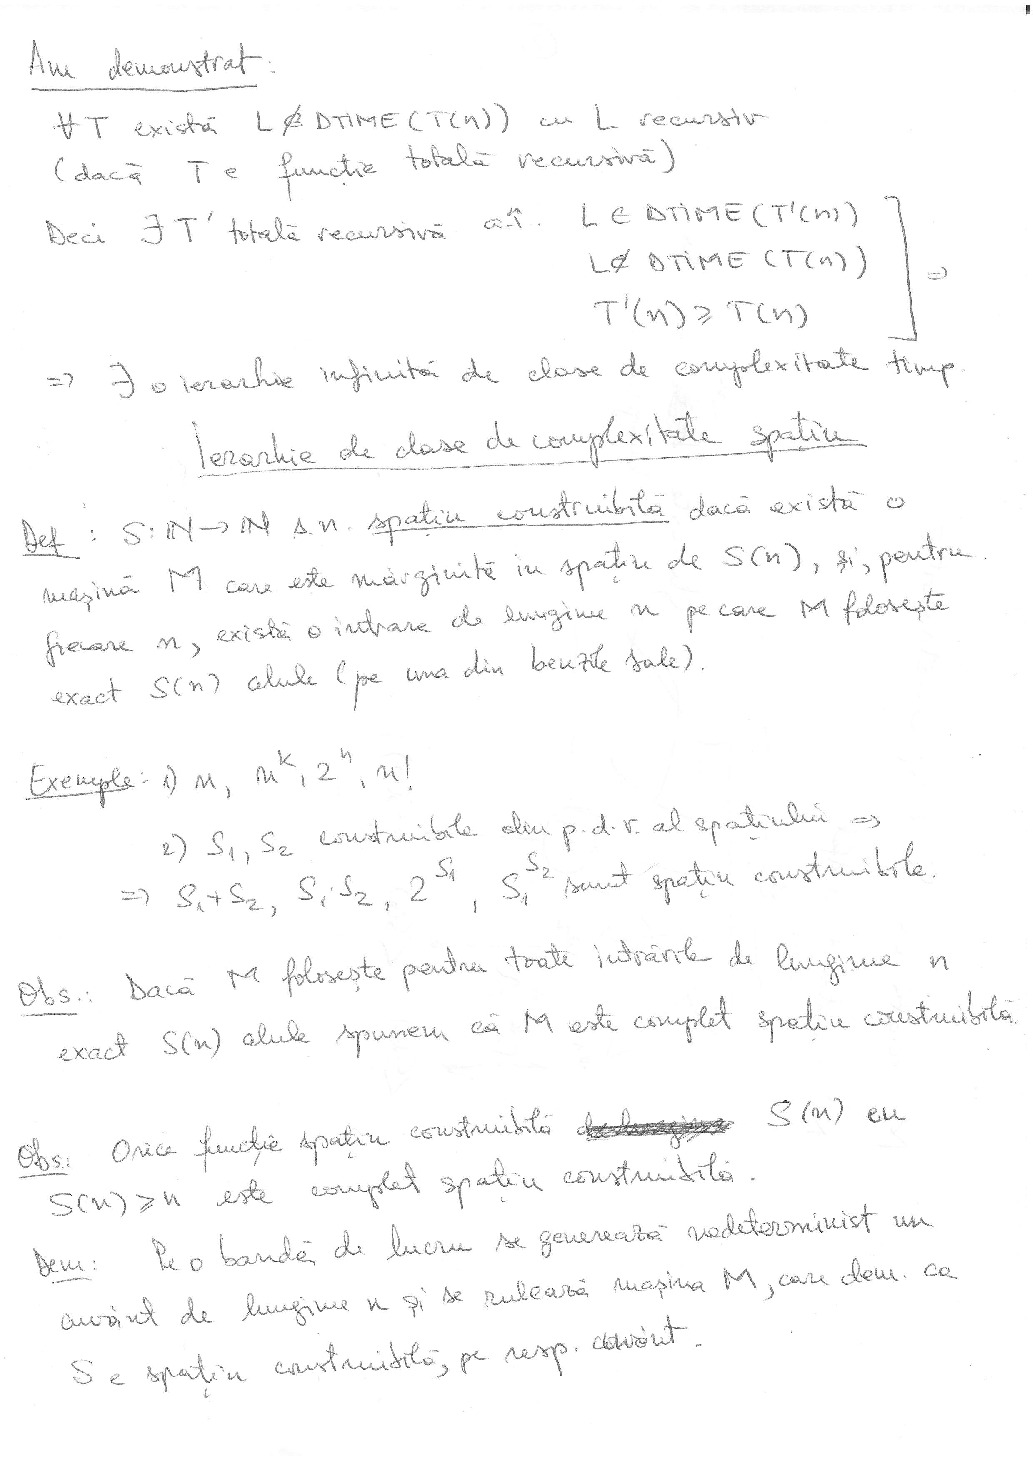 Am demonstrat:
∀T există L ∉ DTIME(T(n)) cu L recursiv
(dacă T e funcție totală recursivă)
Deci ∃ T' totală recursivă a.î. L ∈ DTIME(T'(n))
L ∉ DTIME(T(n)) ⇒
T'(n) ≥ T(n)
⇒ ∃ o ierarhie infinită de clase de complexitate timp.
Ierarhie de clase de complexitate spațiu
Def: S: ℕ → ℕ s.n. spațiu construibilă dacă există o
mașină M care este mărginită in spațiu de S(n), și, pentru
fiecare n, există o intrare de lungime n pe care M folosește
exact S(n) celule (pe una din benzile sale).
Exemple: 1) n, n^k, 2^n, n!
2) S₁, S₂ construibile din p.d.v. al spațiului ⇒
⇒ S₁+S₂, S₁·S₂, 2^S₁, S₁^S₂ sunt spațiu construibile.
Obs.: Dacă M folosește pentru toate intrările de lungime n
exact S(n) celule spunem că M este complet spațiu construibilă.
Obs: Orice funcție spațiu construibilă S(n) cu
S(n) ≥ n este complet spațiu construibilă.
Dem: Pe o bandă de lucru se generează nedeterminist un
cuvânt de lungime n și se rulează mașina M, care dem. ca
S e spațiu construibilă, pe resp. cuvânt.